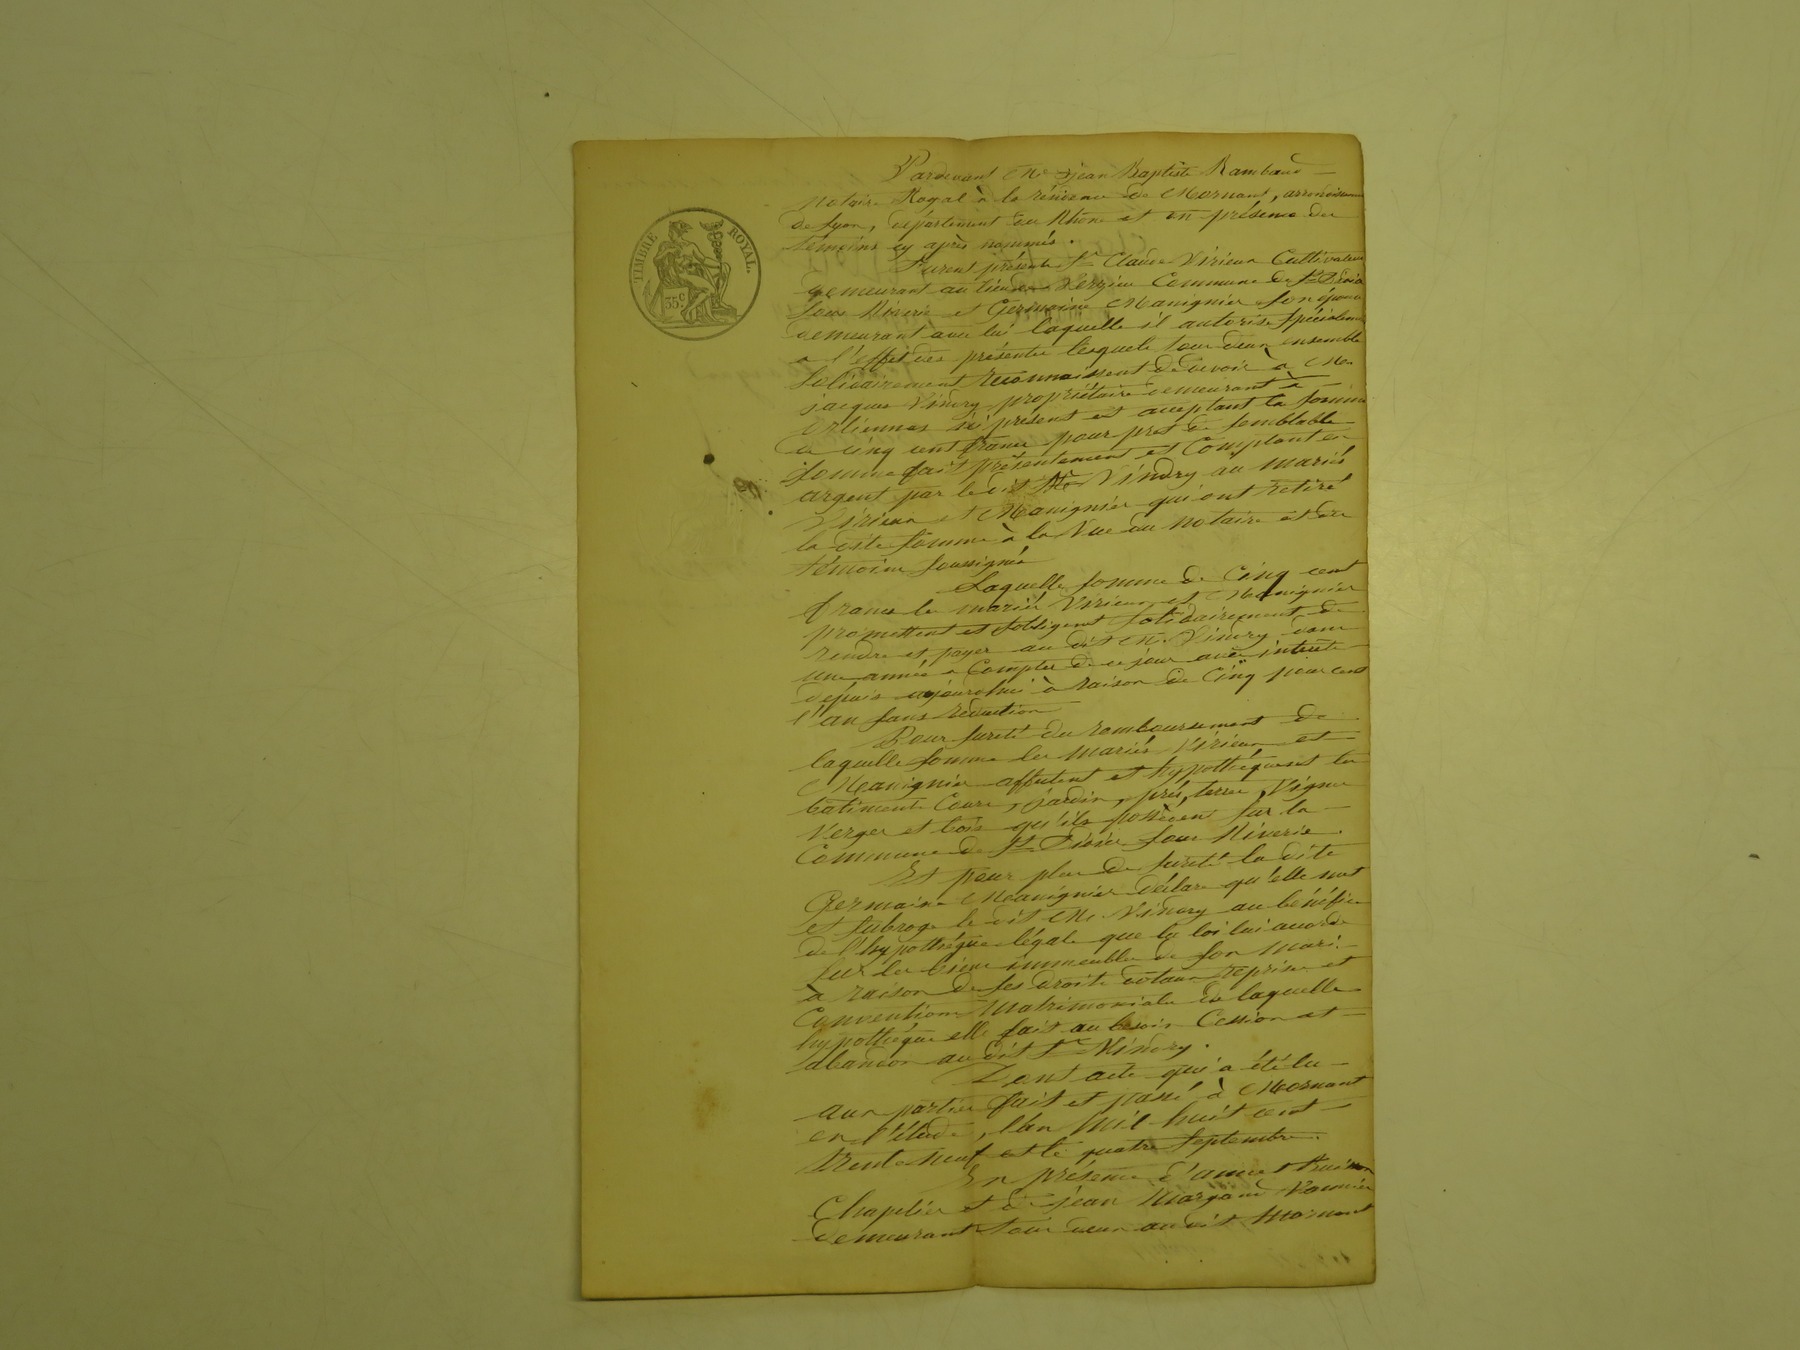 TIMBRE ROYAL.
35c
Pardevant Me Jean Baptiste Rambaud
Notaire Royal à la résidence de Mornant, arrondissement
de Lyon, département du Rhône et en présence des
témoins cy après nommés.
Furent présents Sr Claude Virieux Cultivateur
demeurant au lieu de Commune de St Didier
sous Riverie et Germaine Mauignier son épouse
demeurant avec lui laquelle il autorise spécialement
a l'effet des présentes lesquels tous deux ensemble
solidairement reconnaissent devoir à Mr
jacques Vindry propriétaire demeurant à
Orliennas ici présent et acceptant la somme
de cinq cent francs pour prêt de semblable
somme fait présentement et Comptant en
argent par le dit Mr Vindry au mariés
Virieux et Mauignier qui ont retiré
la dite somme à la Vue du notaire et des
témoins soussignés
Laquelle somme de Cinq cent
francs les mariés Virieux et Mauignier
promettent et s'obligent solidairement de
rendre et payer au dit Mr Vindry dans
une année a Compter de ce jour avec intérêts
depuis aujourd'hui à raison de Cinq pour cent
l'an sans réduction
Pour sureté du remboursement de
laquelle somme les mariés Virieux et
Mauignier affectent et hypothèquent les
batiments Cours, jardin, prés, terres, Vignes
Verger et bois qu'ils possèdent sur la
Commune de St Didier sous Riverie.
Et pour plus de sureté la dite
Germaine Mauignier déclare qu'elle met
et subroge le dit Mr Vindry au bénéfice
de l'hypothèque légale que la loi lui accorde
sur les biens immeubles de son mari
à raison de ses droits dotaux reprises et
Conventions Matrimoniales de laquelle
hypothèque elle fait au besoin Cession et
abandon au dit Sr Vindry.
Dont acte qui a été lu
aux parties fait et passé à Mornant
en l'étude, l'an Mil huit cent
trente neuf et le quatre Septembre.
En présence d'annet
Chapelier et de jean Margand Vannier
demeurant tous deux au dit Mornant